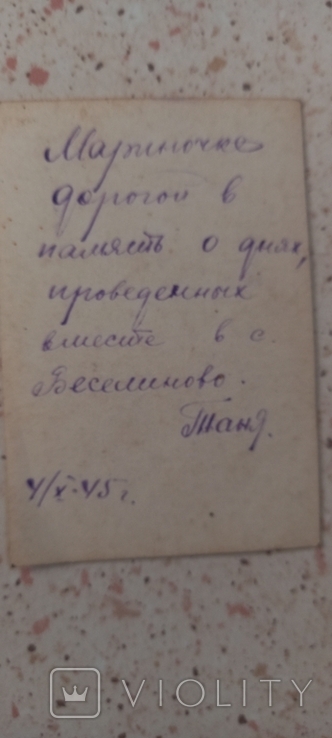 Мариночке
дорогой в
память о днях,
проведенных
вместе в с.
Веселиново.
Таня.
4/X-45 г.
VIOLITY